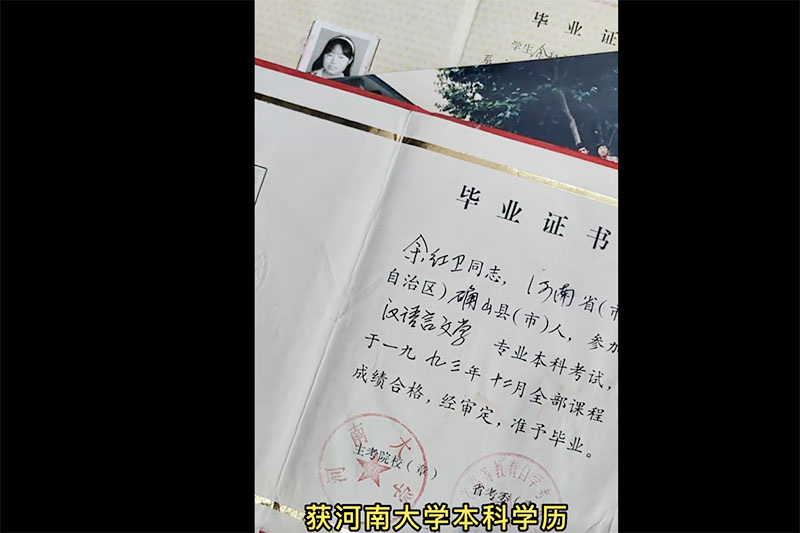 毕业证
学生余红
系
毕业证书
余红卫同志，河南省（市
自治区）确山县（市）人，参加
汉语言文学 专业本科考试，
于一九九三年十二月全部课程
成绩合格，经审定，准予毕业。
河南大学
主考院校（章）
等教育自学考
省考委（
获河南大学本科学历